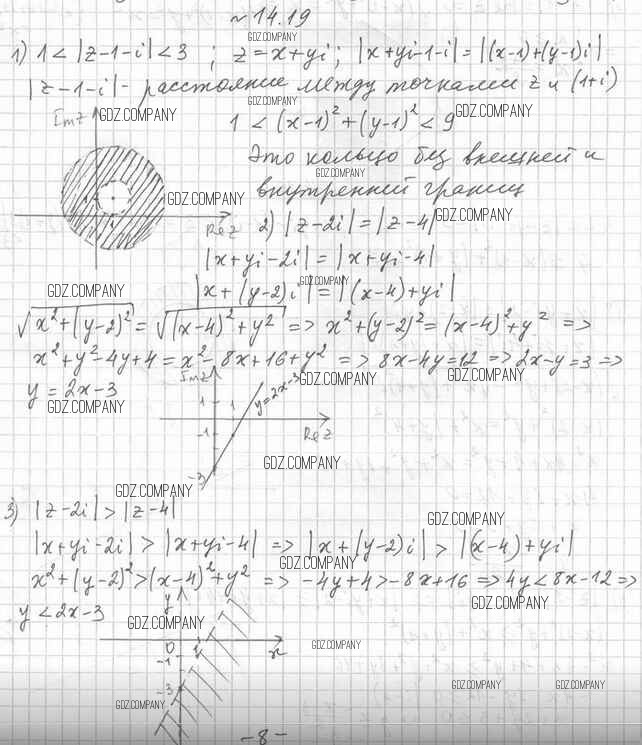 № 14.19
GDZ.COMPANY
1) 1 < |z-1-i| < 3 ; z = x+yi ; |x+yi-1-i| = |(x-1)+(y-1)i|
|z-1-i| - расстояние между точками z и (1+i)
GDZ.COMPANY
Imz GDZ.COMPANY
1 < (x-1)²+(y-1)² < 9 GDZ.COMPANY
Это кольцо без внешней и
GDZ.COMPANY
внутренней границ
GDZ.COMPANY
1
1
Rez
2) |z-2i| = |z-4| GDZ.COMPANY
|x+yi-2i| = |x+yi-4|
GDZ.COMPANY
GDZ.COMPANY |x+(y-2)i| = |(x-4)+yi|
√(x²+(y-2)²) = √((x-4)²+y²) => x²+(y-2)² = (x-4)²+y² =>
x²+y²-4y+4 = x²-8x+16+y² => 8x-4y=12 => 2x-y=3 =>
Imz GDZ.COMPANY GDZ.COMPANY
y = 2x-3
GDZ.COMPANY
1
1
y=2x-3
-1
Rez
GDZ.COMPANY
-3
GDZ.COMPANY
3) |z-2i| > |z-4|
GDZ.COMPANY
|x+yi-2i| > |x+yi-4| => |x+(y-2)i| > |(x-4)+yi|
GDZ.COMPANY
x²+(y-2)² > (x-4)²+y² => -4y+4 > -8x+16 => 4y < 8x-12 =>
GDZ.COMPANY
y < 2x-3
y
GDZ.COMPANY
0
1
x
GDZ.COMPANY
-1
-3
GDZ.COMPANY GDZ.COMPANY
GDZ.COMPANY
-8-